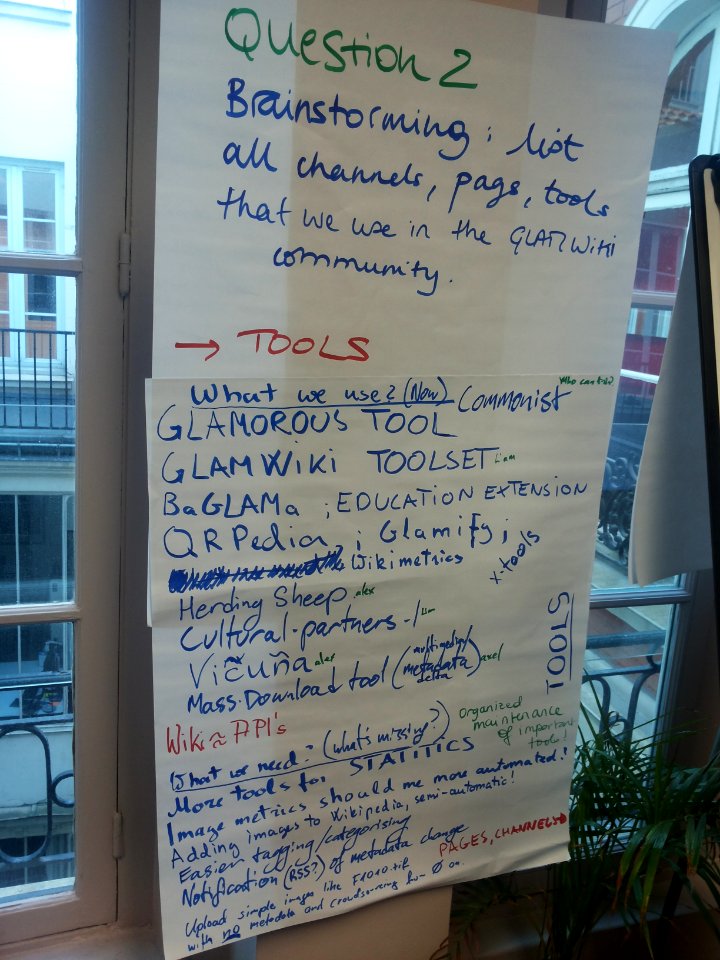 Question 2
Brainstorming: list
all channels, pags, tools
that we use in the GLAMWiki
community.
→ TOOLS
What we use? (Now) Commonist
GLAMOROUS TOOL
GLAMWiki TOOLSET Liam
BaGLAMa ; EDUCATION EXTENSION
QRPedia ; Glamify ;
Wikimetrics
X-tools
Herding Sheep alex
Cultural-partners-l Liam
TOOLS
Vicuña alex
Mass-Download tool (multimedia/metadata delta) axel
Wiki ≈ API's
Organized
maintenance
of important
tools!
What we need? (What's missing?)
More tools for STATITICS
Image metrics should me more automated!
Adding images to Wikipedia, semi-automatic!
Easier tagging/categorising
Notification (RSS?) of metadata change
PAGES, CHANNELS→
Upload simple images like F1010.tif
with no metadata and crowdsourcing from Ø on.